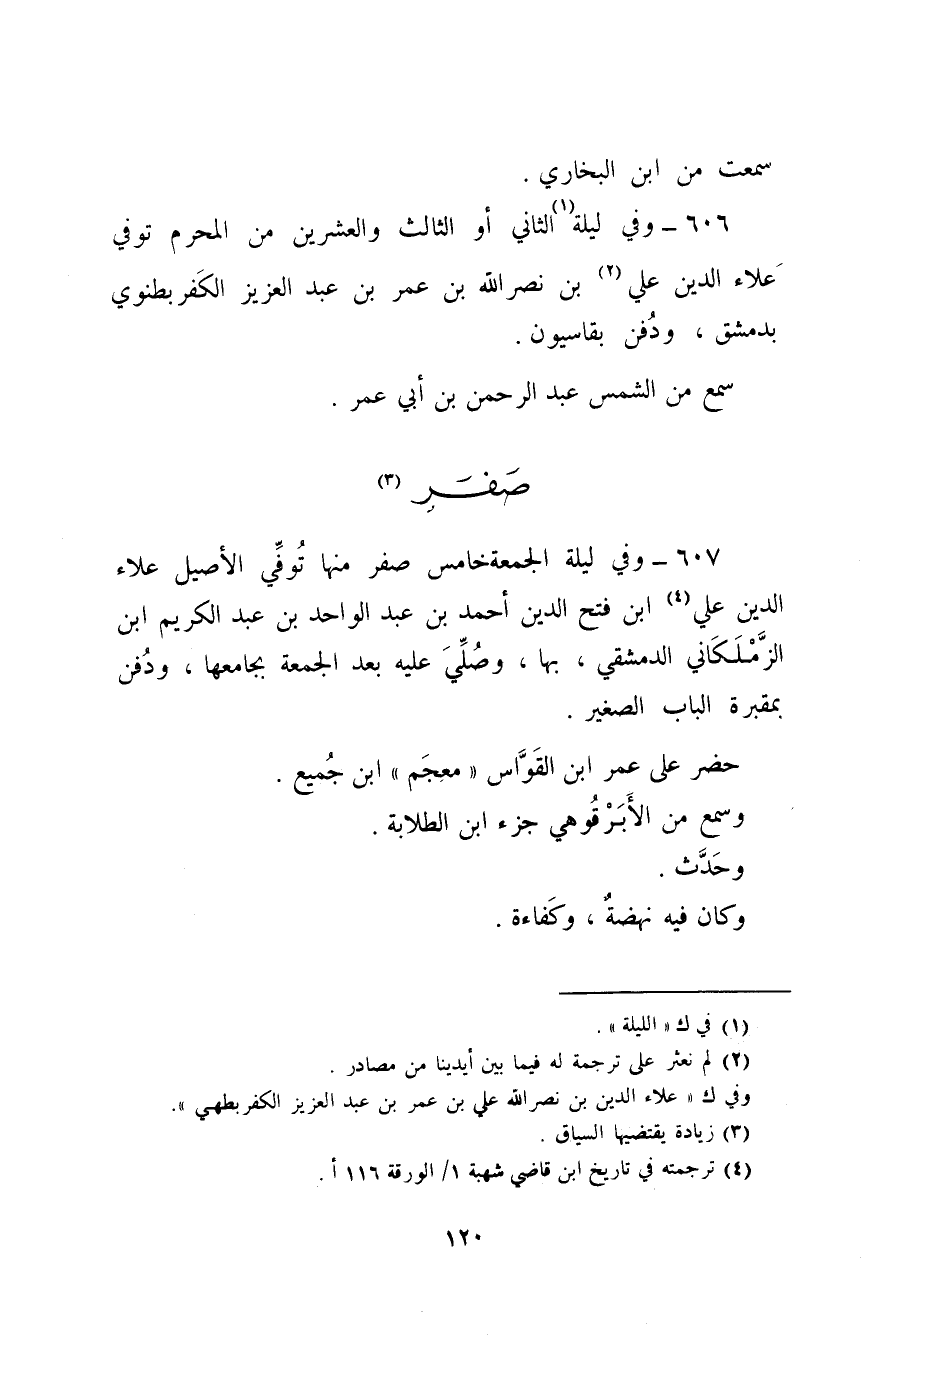 سمعت من ابن البخاري .
٦٠٦ ــ وفي ليلة(١) الثاني أو الثالث والعشرين من المحرم توفي
عَلاء الدين علي(٢) بن نصر الله بن عمر بن عبد العزيز الكَفربطنوي
بدمشق ، ودُفن بقاسيون .
سمع من الشمس عبد الرحمن بن أبي عمر .
صَفَـر (٣)
٦٠٧ ــ وفي ليلة الجمعة خامس صفر منها تُوفِّي الأصيل علاء
الدين علي(٤) ابن فتح الدين أحمد بن عبد الواحد بن عبد الكريم ابن
الزَّمْلَكَاني الدمشقي ، بها ، وصُلِّيَ عليه بعد الجمعة بجامعها ، ودُفن
بمقبرة الباب الصغير .
حضر على عمر ابن القَوَّاس « معجَم » ابن جُميع .
وسمع من الأَبَرْقُوهي جزء ابن الطلابة .
وحَدَّث .
وكان فيه نهضةٌ ، وكَفاءة .
(١) في ك « الليلة » .
(٢) لم نعثر على ترجمة له فيما بين أيدينا من مصادر .
وفي ك « علاء الدين بن نصر الله علي بن عمر بن عبد العزيز الكفربطهي ».
(٣) زيادة يقتضيها السياق .
(٤) ترجمته في تاريخ ابن قاضي شهبة ١/ الورقة ١١٦ أ .
١٢٠